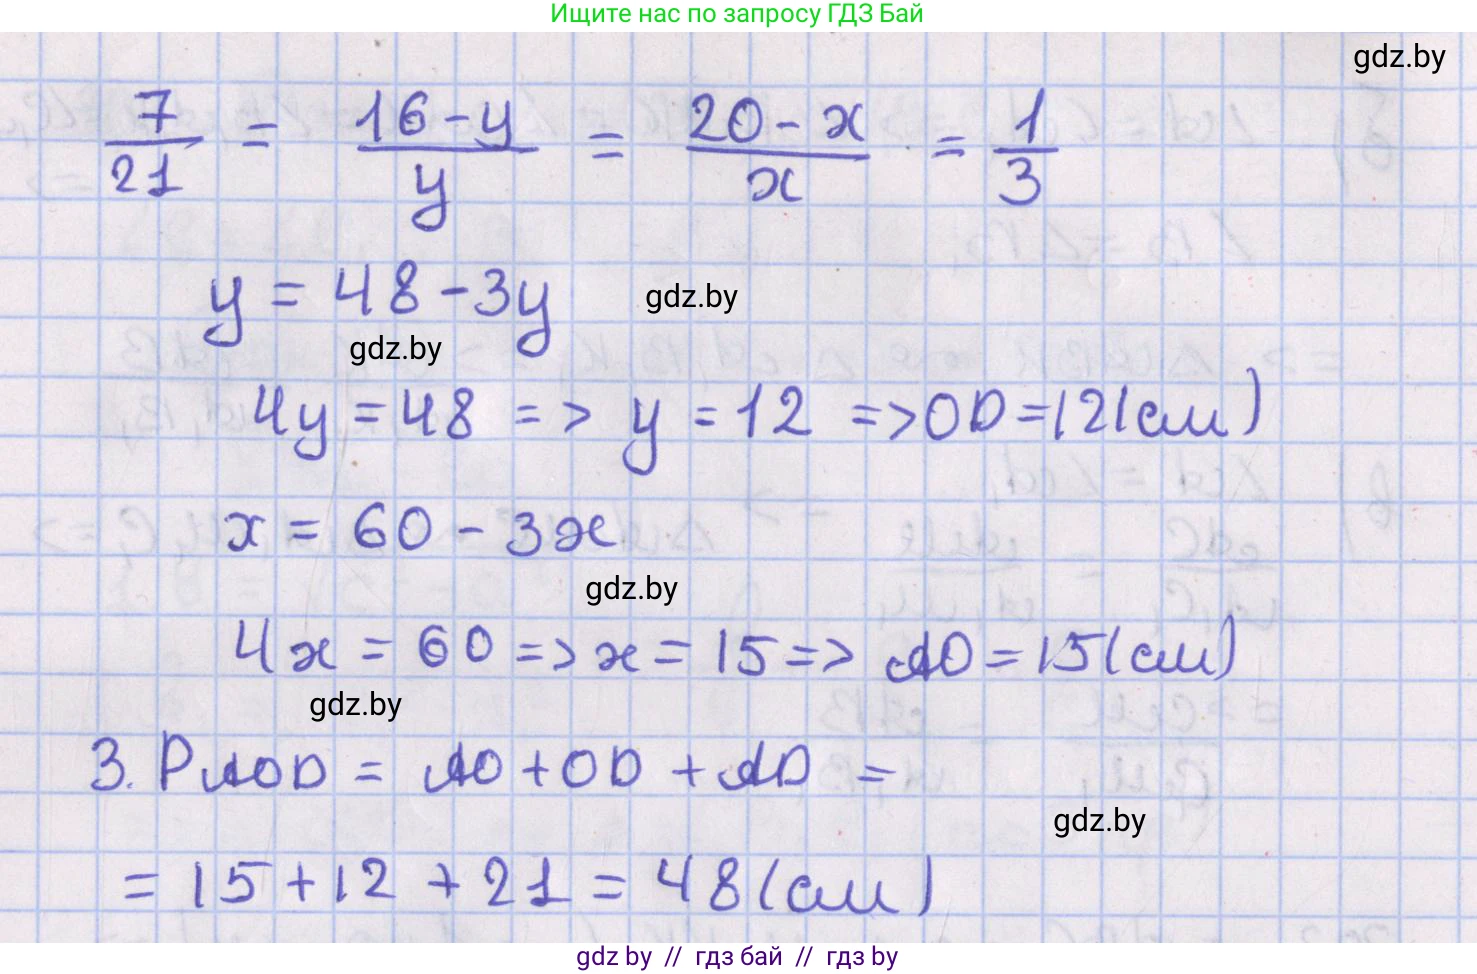 Ищите нас по запросу ГДЗ Бай
gdz.by
7/21 = (16-y)/y = (20-x)/x = 1/3
y = 48-3y
gdz.by
gdz.by
4y = 48 => y = 12 => OD = 12(см)
x = 60 - 3x
gdz.by
4x = 60 => x = 15 => AO = 15(см)
gdz.by
3. PAOD = AO + OD + AD =
gdz.by
= 15 + 12 + 21 = 48(см)
gdz by // гдз бай // гдз by